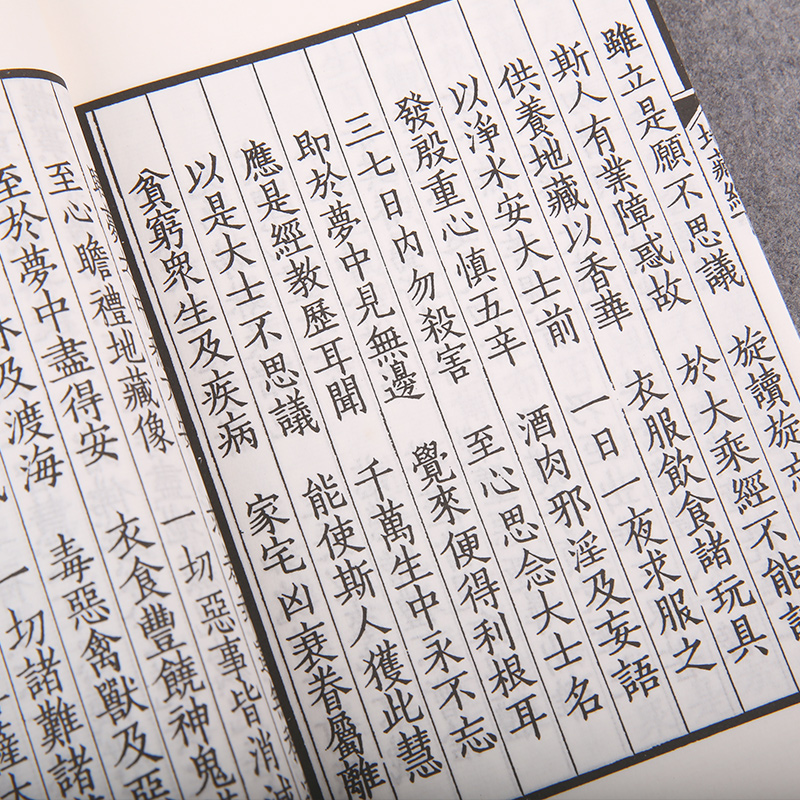 地藏經
雖立是願不思議 旋讀旋忘
斯人有業障惑故 於大乘經不能記
供養地藏以香華 衣服飲食諸玩具
以淨水安大士前 一日一夜求服之
發殷重心慎五辛 酒肉邪淫及妄語
三七日內勿殺害 至心思念大士名
即於夢中見無邊 覺來便得利根耳
應是經教歷耳聞 千萬生中永不忘
以是大士不思議 能使斯人獲此慧
貧窮衆生及疾病 家宅凶衰眷屬離
至心瞻禮地藏像 一切惡事皆消滅
至於夢中盡得安 衣食豐饒神鬼
林及渡海 毒惡禽獸及惡
一切諸難諸
薩大